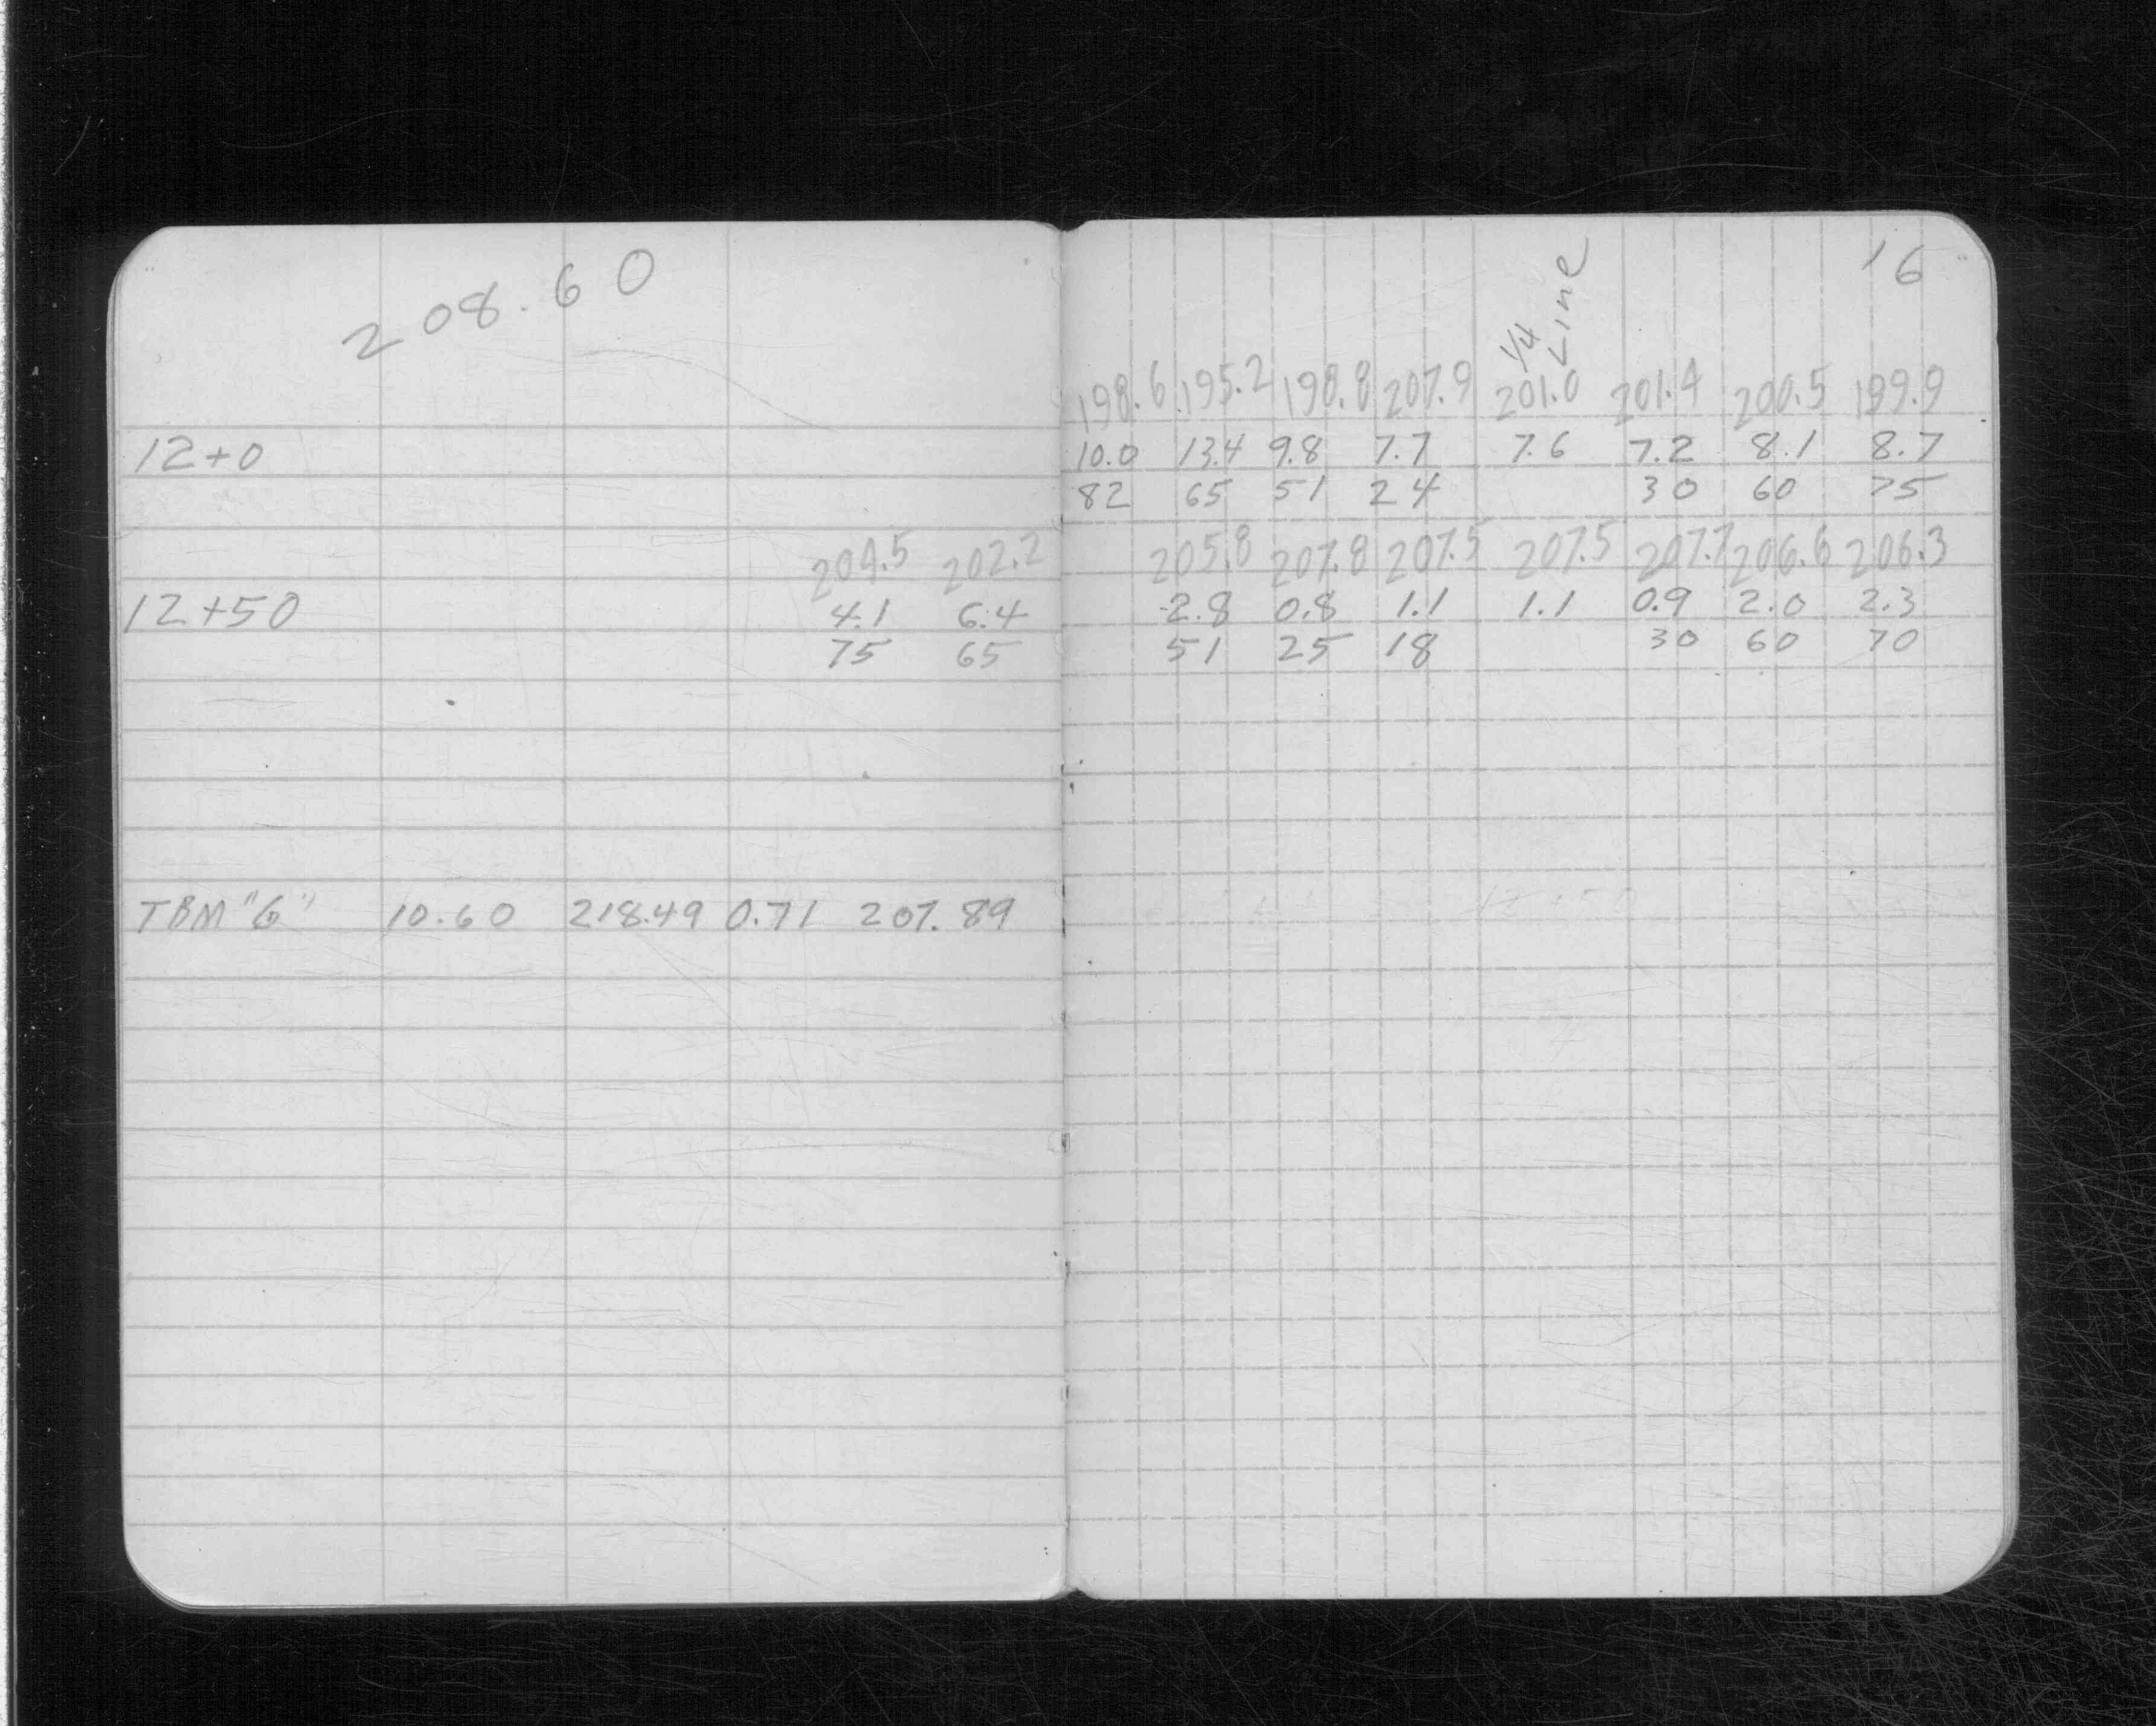 208.60
12+0
204.5 202.2
12+50 4.1 6.4
75 65
TBM "6" 10.60 218.49 0.71 207.89
16
1/4
Line
198.6 195.2 198.8 207.9 201.0 201.4 200.5 199.9
10.0 13.4 9.8 7.7 7.6 7.2 8.1 8.7
82 65 51 24 30 60 75
205.8 207.8 207.5 207.5 207.7 206.6 206.3
2.8 0.8 1.1 1.1 0.9 2.0 2.3
51 25 18 30 60 70